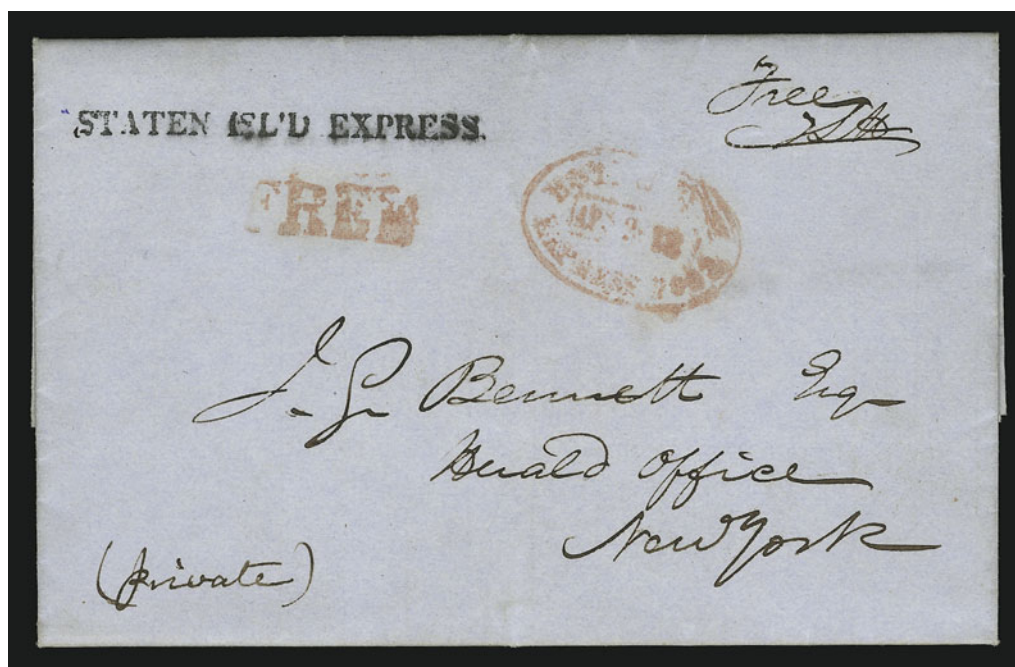 Free
STATEN ISL'D EXPRESS.
FREE
EXPRESS POST
J. G. Bennett Esq
Herald Office
New York
(private)